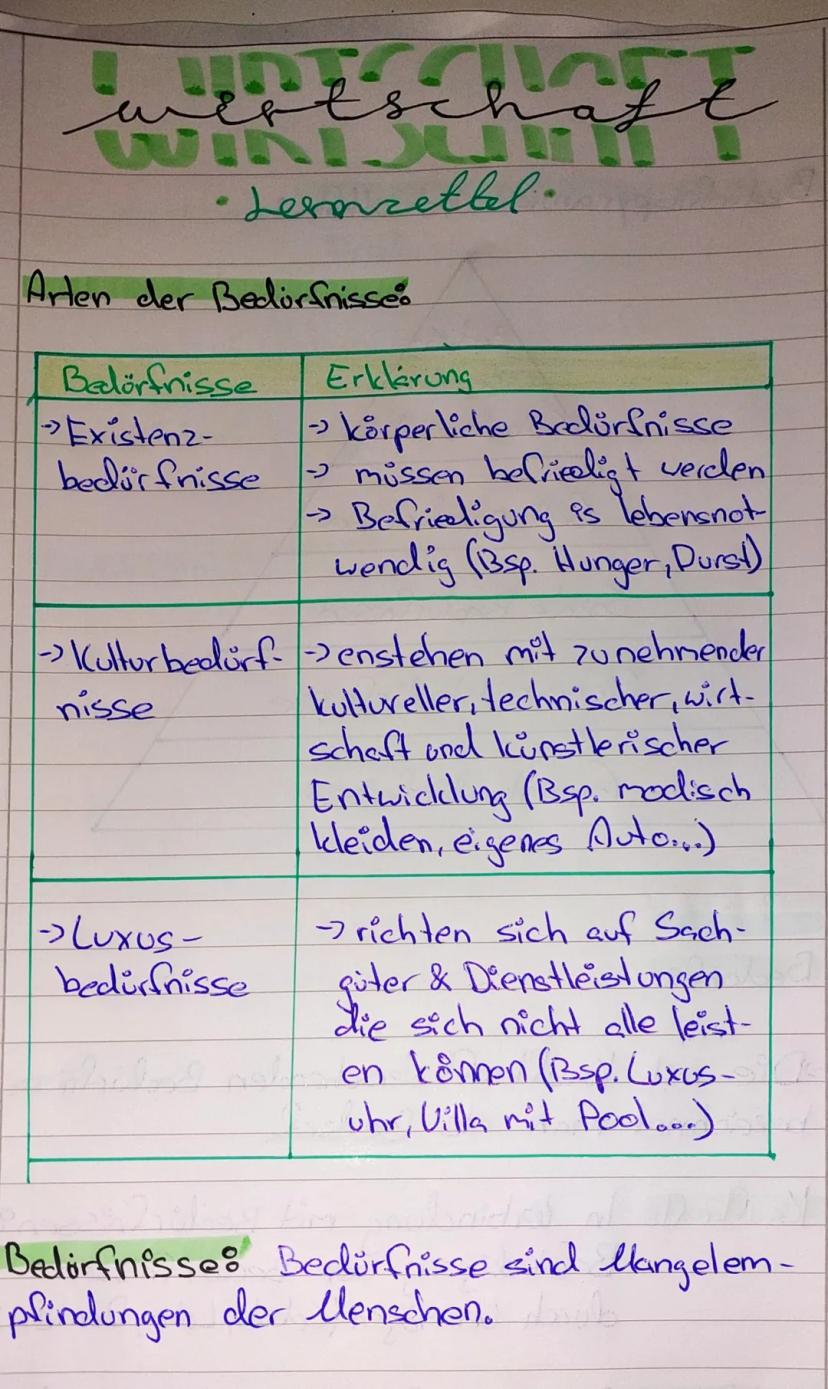 WIRTSCHAFT
wirtschaft
• Lernzettel •
Arten der Bedürfnisse:
Bedürfnisse
Erklärung
→ Existenz-
bedürfnisse
→ körperliche Bedürfnisse
→ müssen befriedigt werden
→ Befriedigung is lebensnot-
wendig (Bsp. Hunger, Durst)
→ Kulturbedürf-
nisse
→ enstehen mit zunehmender
kultureller, technischer, wirt-
schaft und künstlerischer
Entwicklung (Bsp. modisch
kleiden, eigenes Auto...)
→ Luxus-
bedürfnisse
→ richten sich auf Sach-
güter & Dienstleistungen
die sich nicht alle leist-
en können (Bsp. Luxus-
uhr, Villa mit Pool...)
Bedürfnisse: Bedürfnisse sind Mangelem-
pfindungen der Menschen.